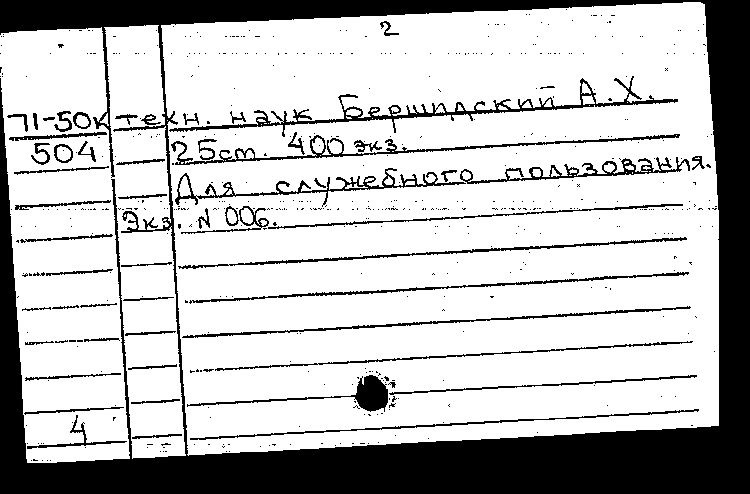 2
71-50к техн. наук Бершадский А.Х.
504 25ст. 400 экз.
Для служебного пользования.
Экз. N 006.
4